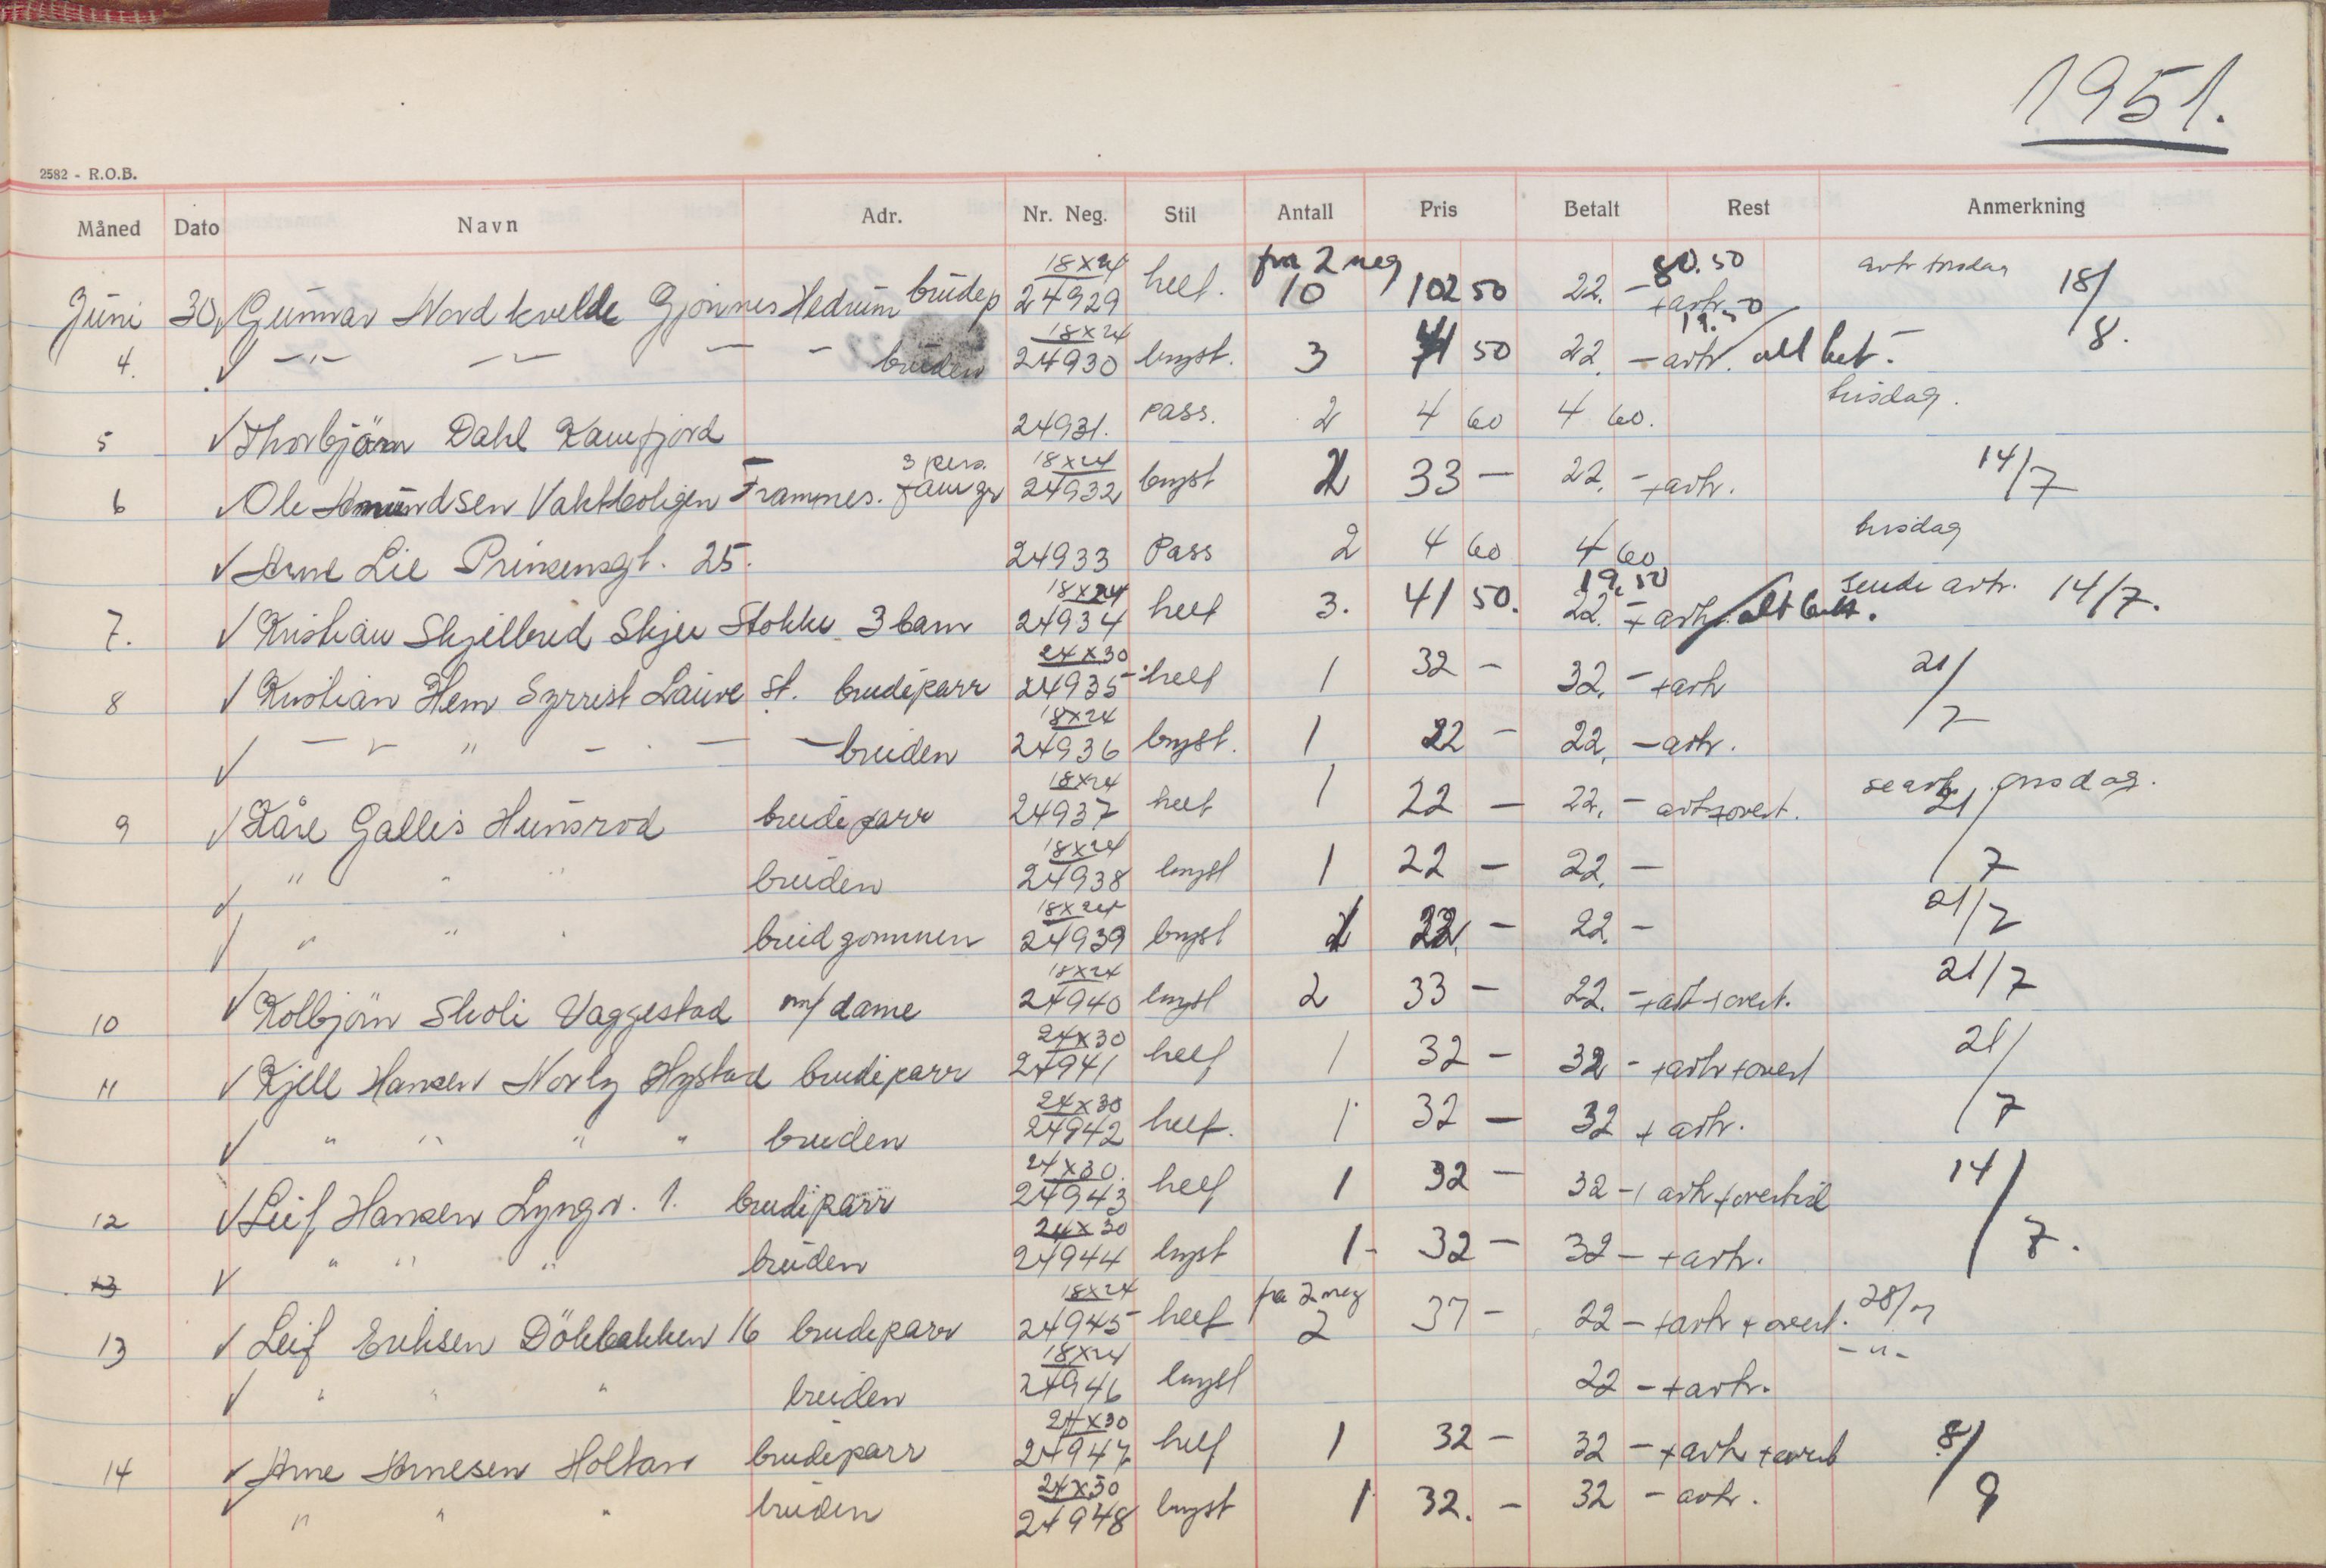 1951.
2582 - R.O.B.
Måned Dato Navn Adr. Nr. Neg. Stil Antall Pris Betalt Rest Anmerkning
18x24 fra 2 neg 80.50
Juni 30, Gunnar Nordkvelde Gjønnes Hedrum brudep 24929 helf. 10 102 50 22. - + avtr. 18/
18x24 19.50
4. √ -"- - - - - bruden 24930 bryst. 3 41 50 22. - avtr. alt bet. 8.
5 √ Thorbjörn Dahl Kamfjord 24931. pass. 2 4 60 4 60. tirsdag.
3 pers. 18x24
6 √ Ole Amundsen Vaktboligen Framnes. fam gr 24932 bryst 2 33 - 22. - + avtr. 14/7
√ Arne Lie Prinsensgt. 25. 24933 Pass 2 4 60 4 60 tirsdag
18x24 19.50
7. √ Kristian Skjelbred Skjee Stokke 3 barn 24934 helf 3. 41 50. 22. - + avtr. alt bet. sende avtr. 14/7.
24x30
8 √ Kristian Hem Lauve st. brudeparr 24935 helf 1 32 - 32. - + avtr 21/
18x24
√ - - " - - - - bruden 24936 bryst. 1 22 - 22. - avtr. 7
18x24
9 √ Kåre Gallis Hunsrod brudeparr 24937 helf 1 22 - 22. - avtr + overt. se avtr. onsdag. 21/
18x24
√ " " " bruden 24938 bryst 1 22 - 22. - 7
18x24
√ " " " brudgommen 24939 bryst 1 22. - 22. - 21/7
18x24
10 √ Kolbjörn Skoli Vaggestad m/ dame 24940 bryst 2 33 - 22. - + avtr + overt. 21/7
24x30
11 √ Kjell Hansen Norby Hystad brudeparr 24941 helf 1 32 - 32 - + avtr + overt 21/
24x30
√ " " " " bruden 24942 helf. 1 32 - 32 + avtr. 7
24x30.
12 √ Leif Hansen Lyngv. 1. brudeparr 24943 helf 1 32 - 32 - + avtr + overtid 14/
24x30
13 √ " " " bruden 24944 bryst 1 - 32 - 32 - + avtr. 7.
18x24 fra 2 neg
13 √ Leif Eriksen Dölebakken 16 brudeparr 24945 helf 2 37 - 22 - + avtr + overt. 28/7
18x24
√ " " " bruden 24946 bryst 22 - + avtr. -"-
24x30
14 √ Arne Arnesen Holtan brudeparr 24947 helf 1 32 - 32 - + avtr + overt 8/
24x30
" " " bruden 24948 bryst 1 32. - 32 - avtr. 9